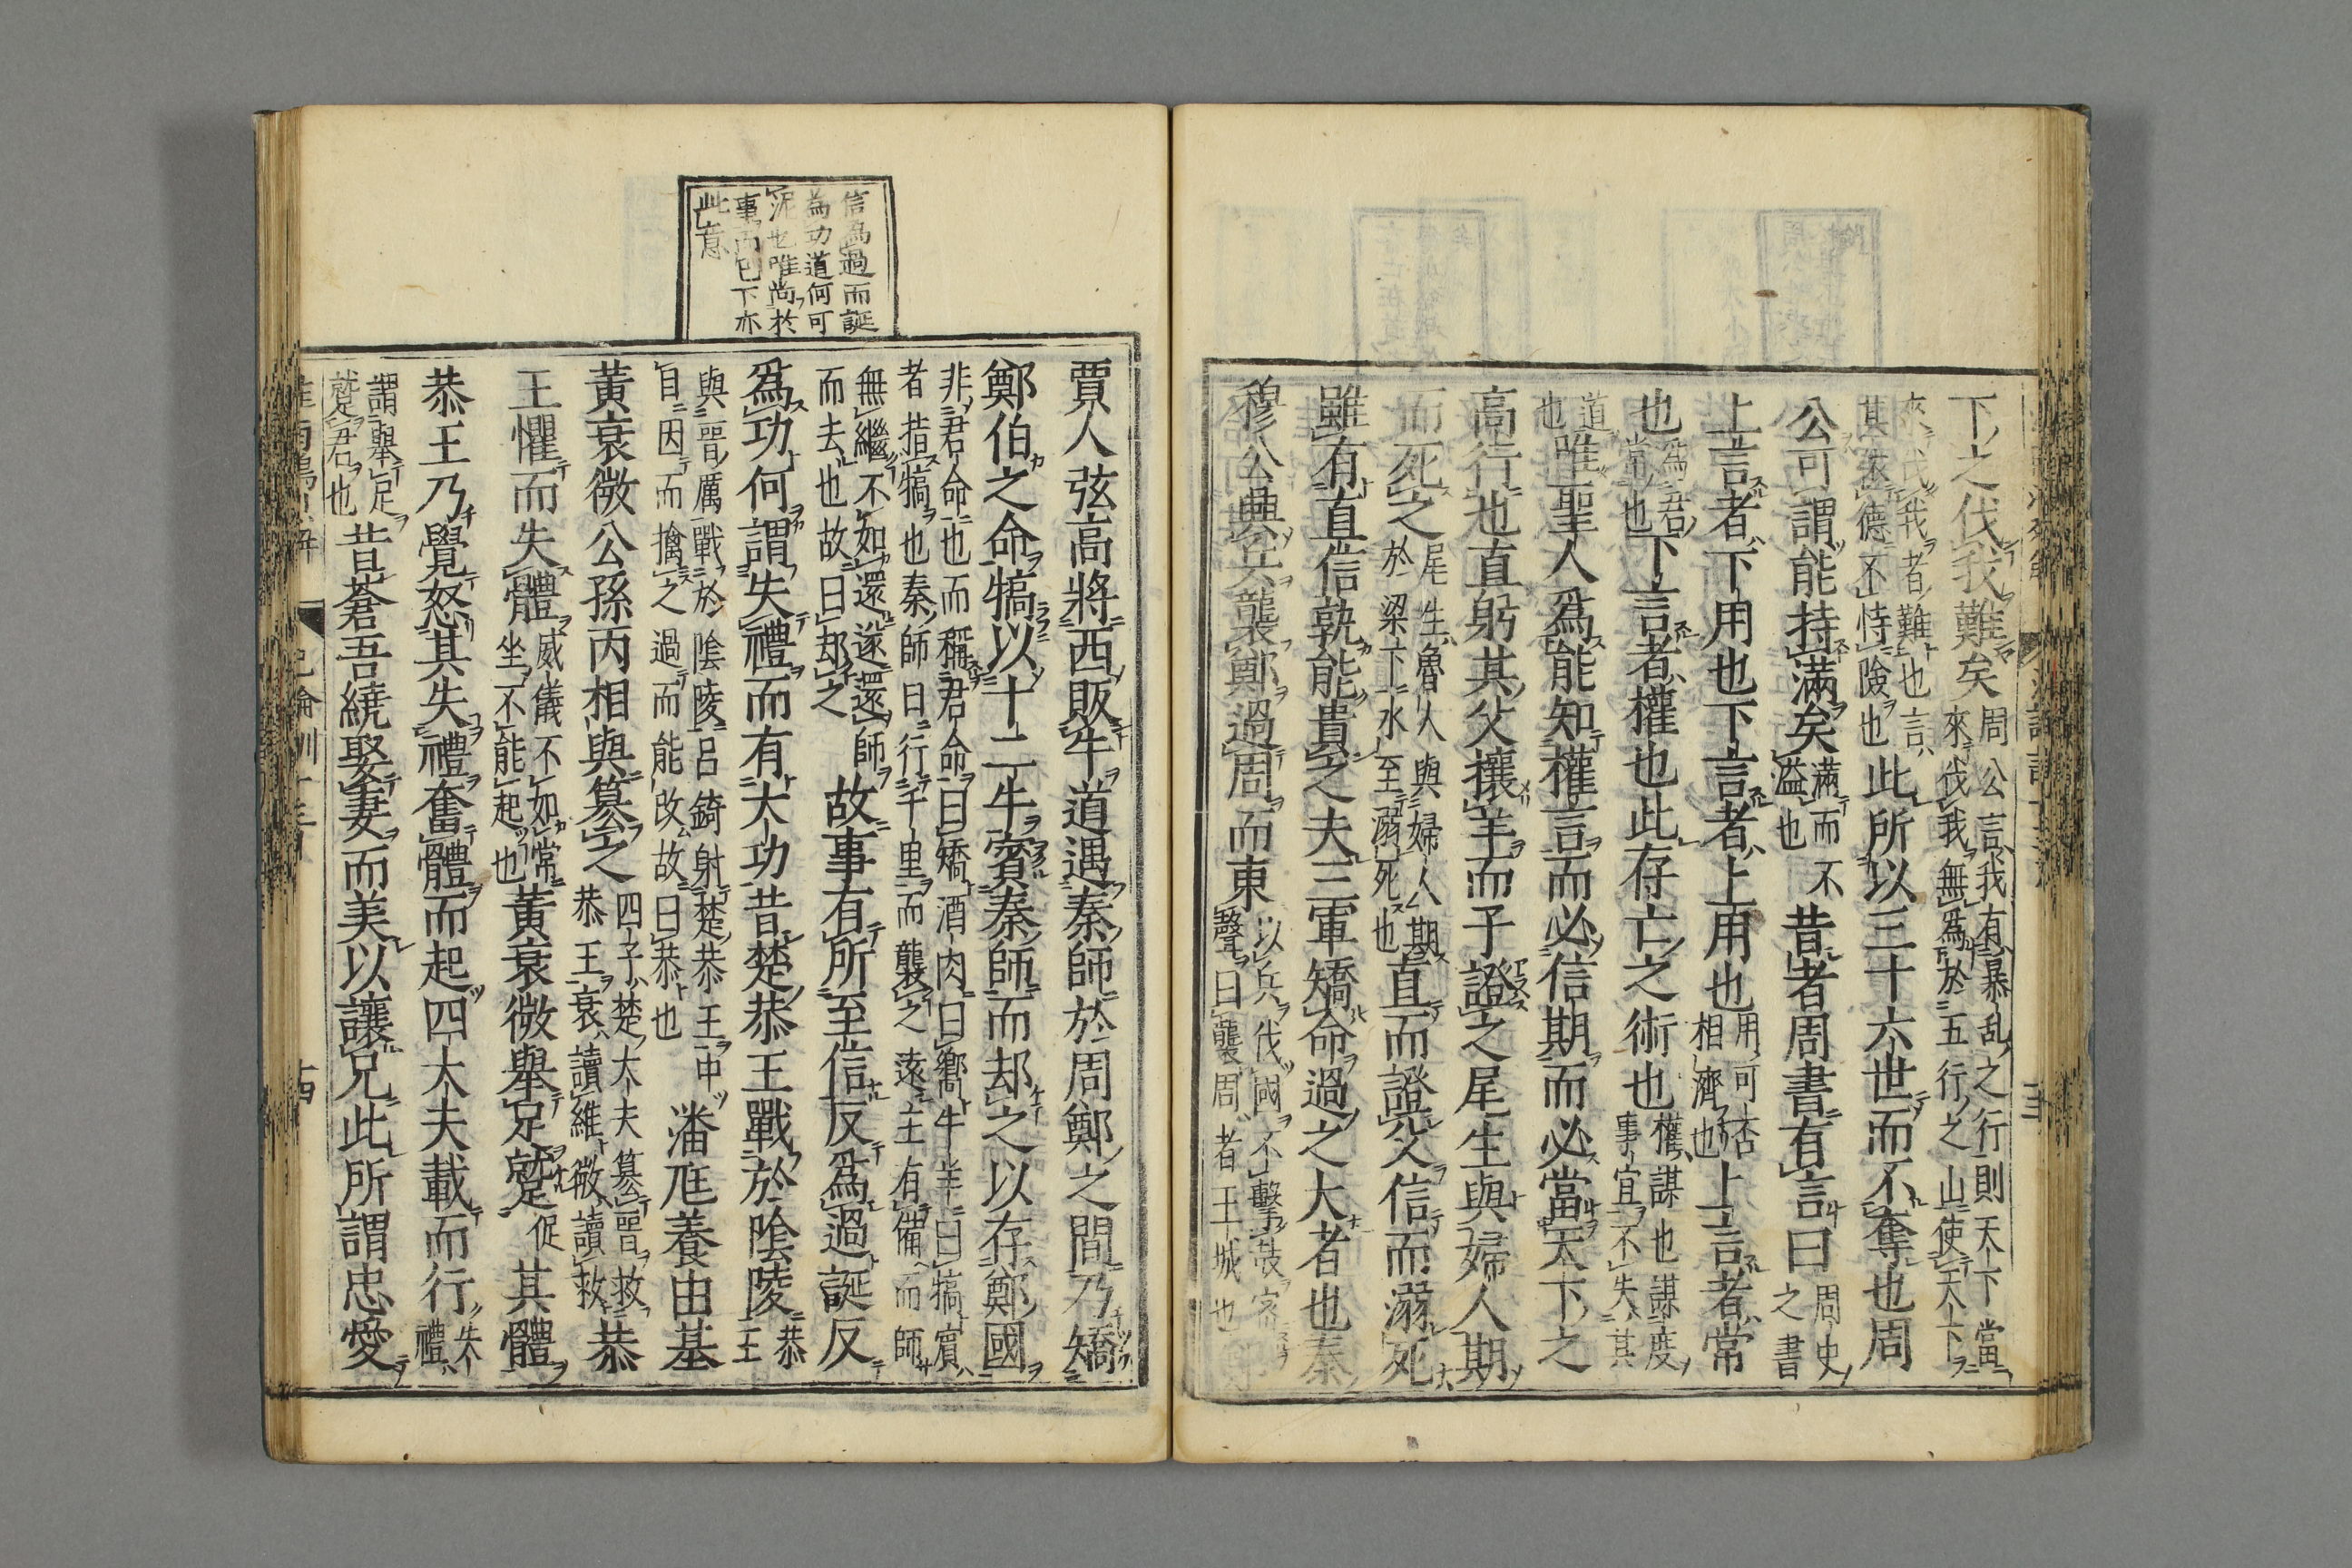 下之伐我難矣周公言我有暴亂之行則天下當來伐我無爲於五行之山使天下
來伐我者難也言其依德不恃險也此所以三十六世而不奪也周
公可謂能持滿矣滿而不溢也昔者周書有言曰周史之書
上言者下用也下言者上用也用可否相濟也上言者常
也爲君常也下言者權也此存亡之術也權謀也謀度事宜不失其
道也唯聖人爲能知權言而必信期而必當天下之
高行也直躬其父攘羊而子證之尾生與婦人期
而死之尾生魯人與婦人期於梁下水至溺死也直而證父信而溺死
雖有直信孰能貴之夫三軍矯命過之大者也秦
穆公興兵襲鄭過周而東以兵伐國不擊鼓密聲曰襲周者王城也
信爲過而誕
爲功道何可
泥也唯尚於
事而已下亦
此意
賈人弦高將西販牛道遇秦師於周鄭之間乃矯
鄭伯之命犒以十二牛賓秦師而却之以存鄭國
非君命也而稱君命曰矯酒肉曰饗牛羊曰犒賓
者措犒也秦師日行千里而襲之遠主有備而師
無繼不如還遂還師而去也故曰却之故事有所至信反爲過誕反
爲功何謂失禮而有大功昔楚恭王戰於陰陵恭王
與晉厲戰於陰陵呂錡射楚恭王中目因而擒之過而能改故曰恭也潘尫養由基
黃衰微公孫丙相與篡之四子楚大夫篡晉救恭王衰讀維微讀救恭
王懼而失體威儀不如常坐不能起也黃衰微舉足蹵促其體
恭王乃覺怒其失禮奮體而起四大夫載而行失禮
謂舉足蹵君也昔蒼吾繞娶妻而美以讓兄此所謂忠愛
十四